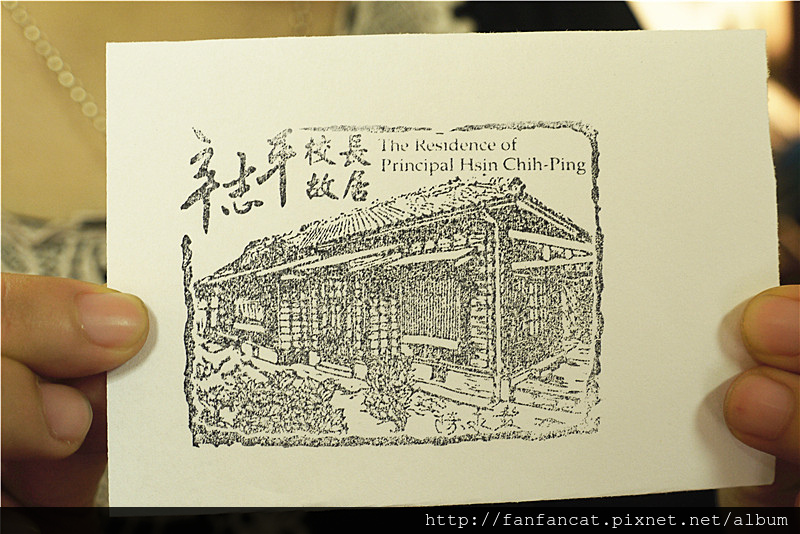 辛志平校長
故居
The Residence of
Principal Hsin Chih-Ping
http://fanfancat.pixnet.net/album